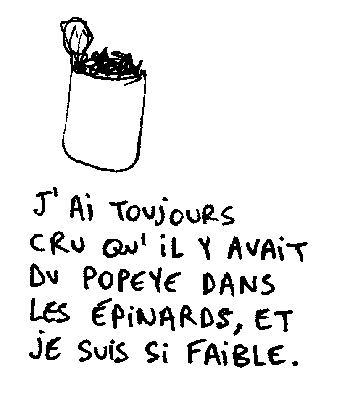 J'Ai TOUJOURS
CRU QU'iL Y AVAiT
DU POPEYE DANS
LES ÉPiNARDS, ET
JE SUiS Si FAiBLE.